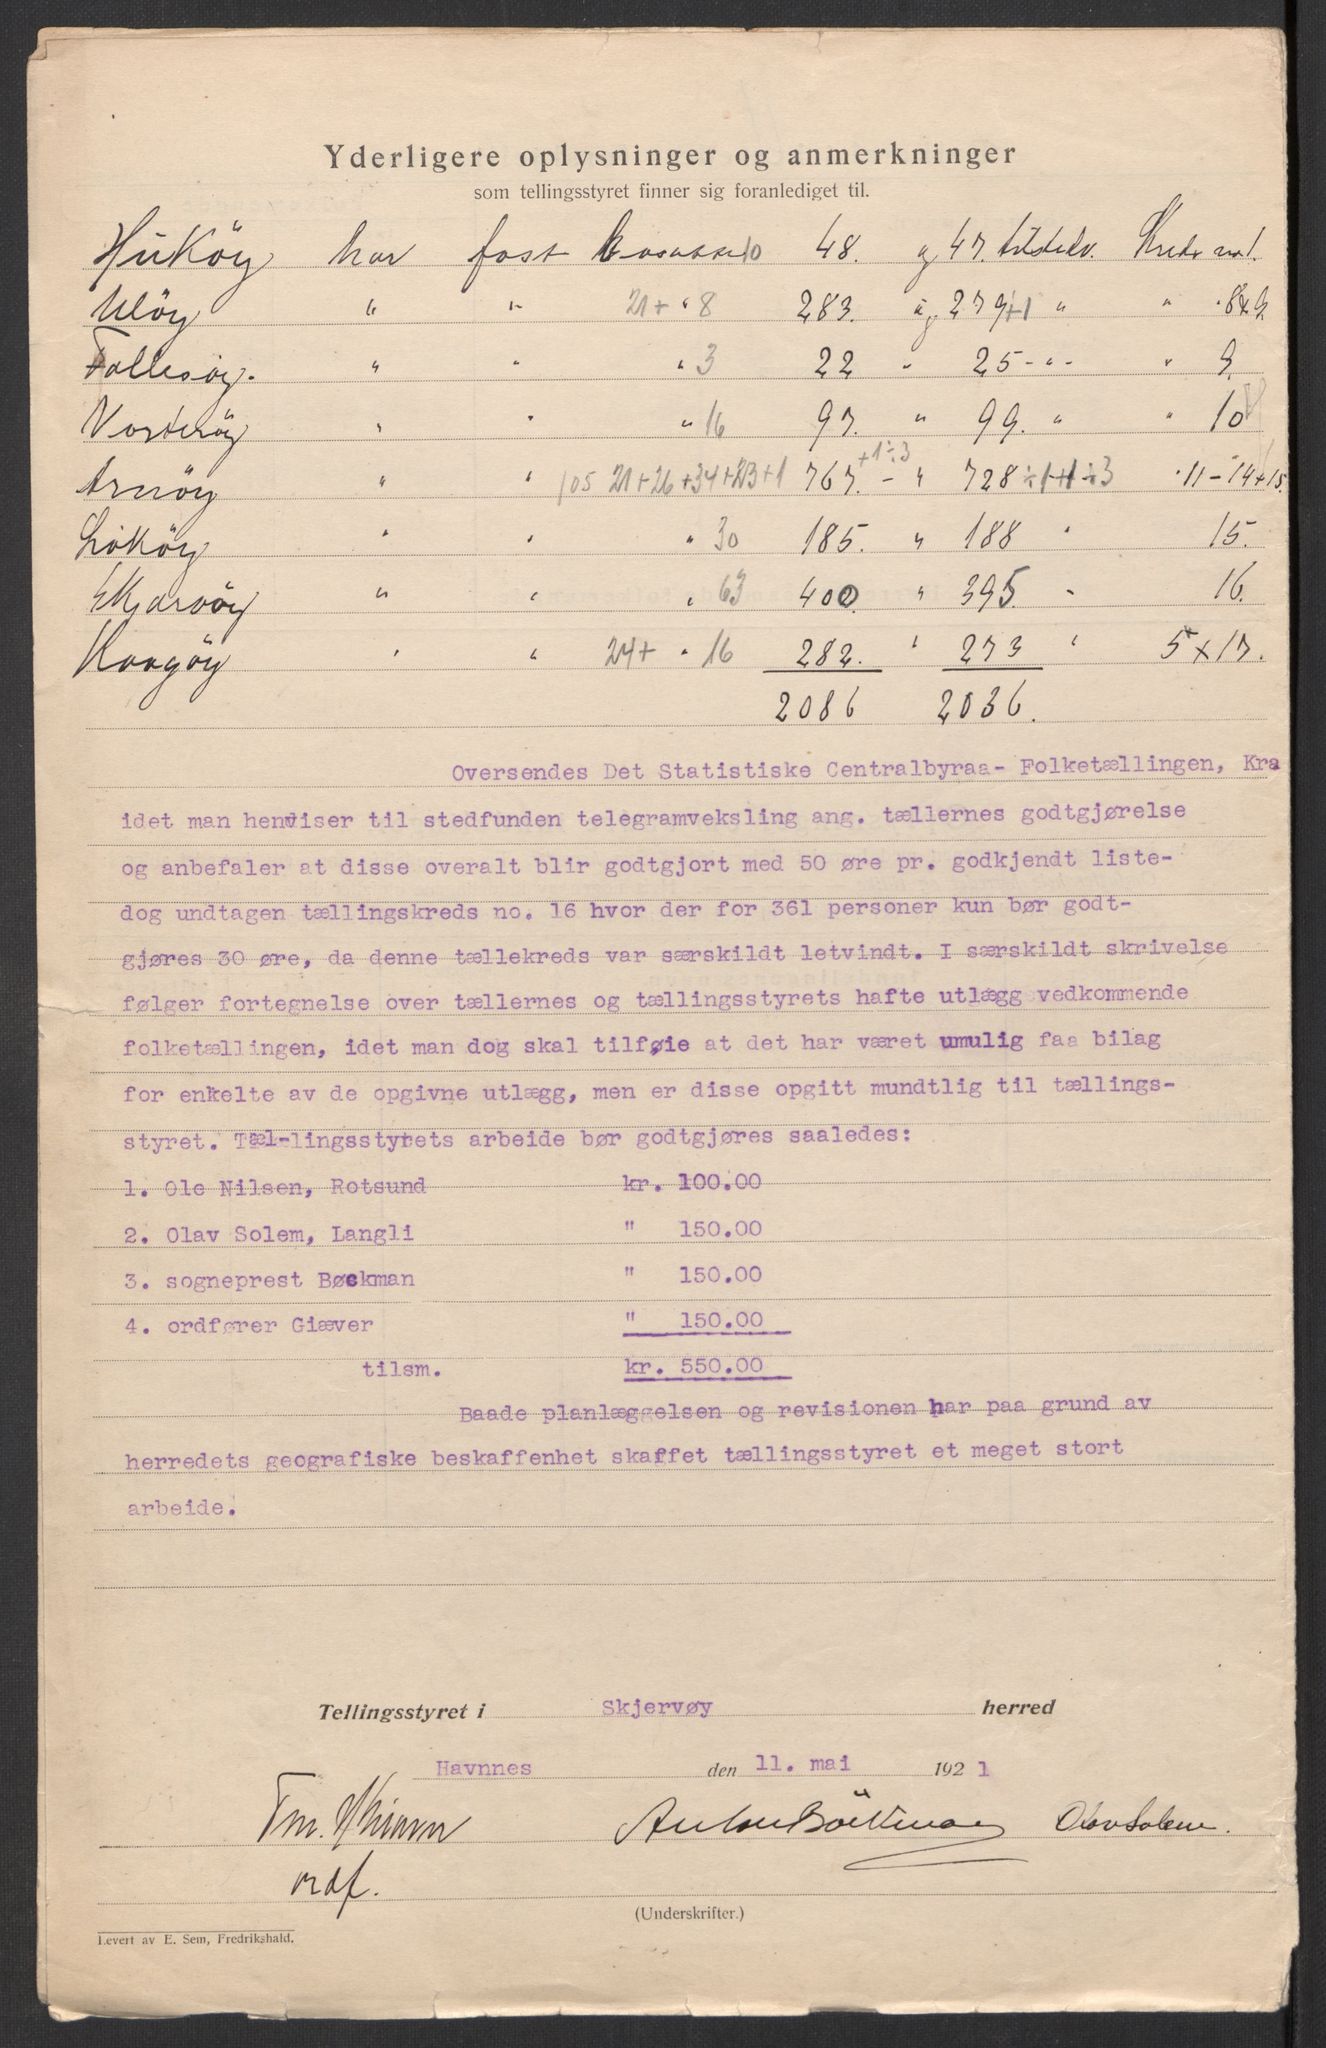 Yderligere oplysninger og anmerkninger
som tellingsstyret finner sig foranlediget til.
Hukøy har fast 10 48. og 47. tilstedev. Kreds no 1.
Uløy " " 21 + " 8 283. " og 279+1 " " " 8 x 9
Follesøy. " " " 3 22 " 25 - " - " 9.
Vorterøy " " " 16 97. " 99. " " 10
Arnøy " " 105 21+26+34+23+1 767. +1÷3 - " 728÷1+1÷3 " 11-14+15.
Loköy " " " 30 185. " 188 " 15.
Skjærvöy " " " 63 400. " 395. " 16.
Kaagöy " " 24+ " 16 282. " 273 " 5 x 17.
2086 2036.
Oversendes Det Statistiske Centralbyraa- Folketællingen, Kra
idet man henviser til stedfunden telegramveksling ang. tællernes godtgjørelse
og anbefaler at disse overalt blir godtgjort med 50 øre pr. godkjendt liste-
dog undtagen tællingskreds no. 16 hvor der for 361 personer kun bør godt-
gjøres 30 øre, da denne tællekreds var særskildt letvindt. I særskildt skrivelse
følger fortegnelse over tællernes og tællingsstyrets hafte utlægg vedkommende
folketællingen, idet man dog skal tilføie at det har været umulig faa bilag
for enkelte av de opgivne utlægg, men er disse opgitt mundtlig til tællings-
styret. Tæl-lingsstyrets arbeide bør godtgjøres saaledes:
1. Ole Nilsen, Rotsund kr. 100.00
2. Olav Solem, Langli " 150.00
3. sogneprest Bøckman " 150.00
4. ordfører Giæver " 150.00
tilsm. kr. 550.00
Baade planlæggelsen og revisionen har paa grund av
herredets geografiske beskaffenhet skaffet tællingsstyret et meget stort
arbeide.
Tellingsstyret i Skjervøy herred
Havnnes den 11. mai 1921
Anton Böckman Olav Solem.
ordf.
(Underskrifter.)
Levert av E. Sem, Fredrikshald.